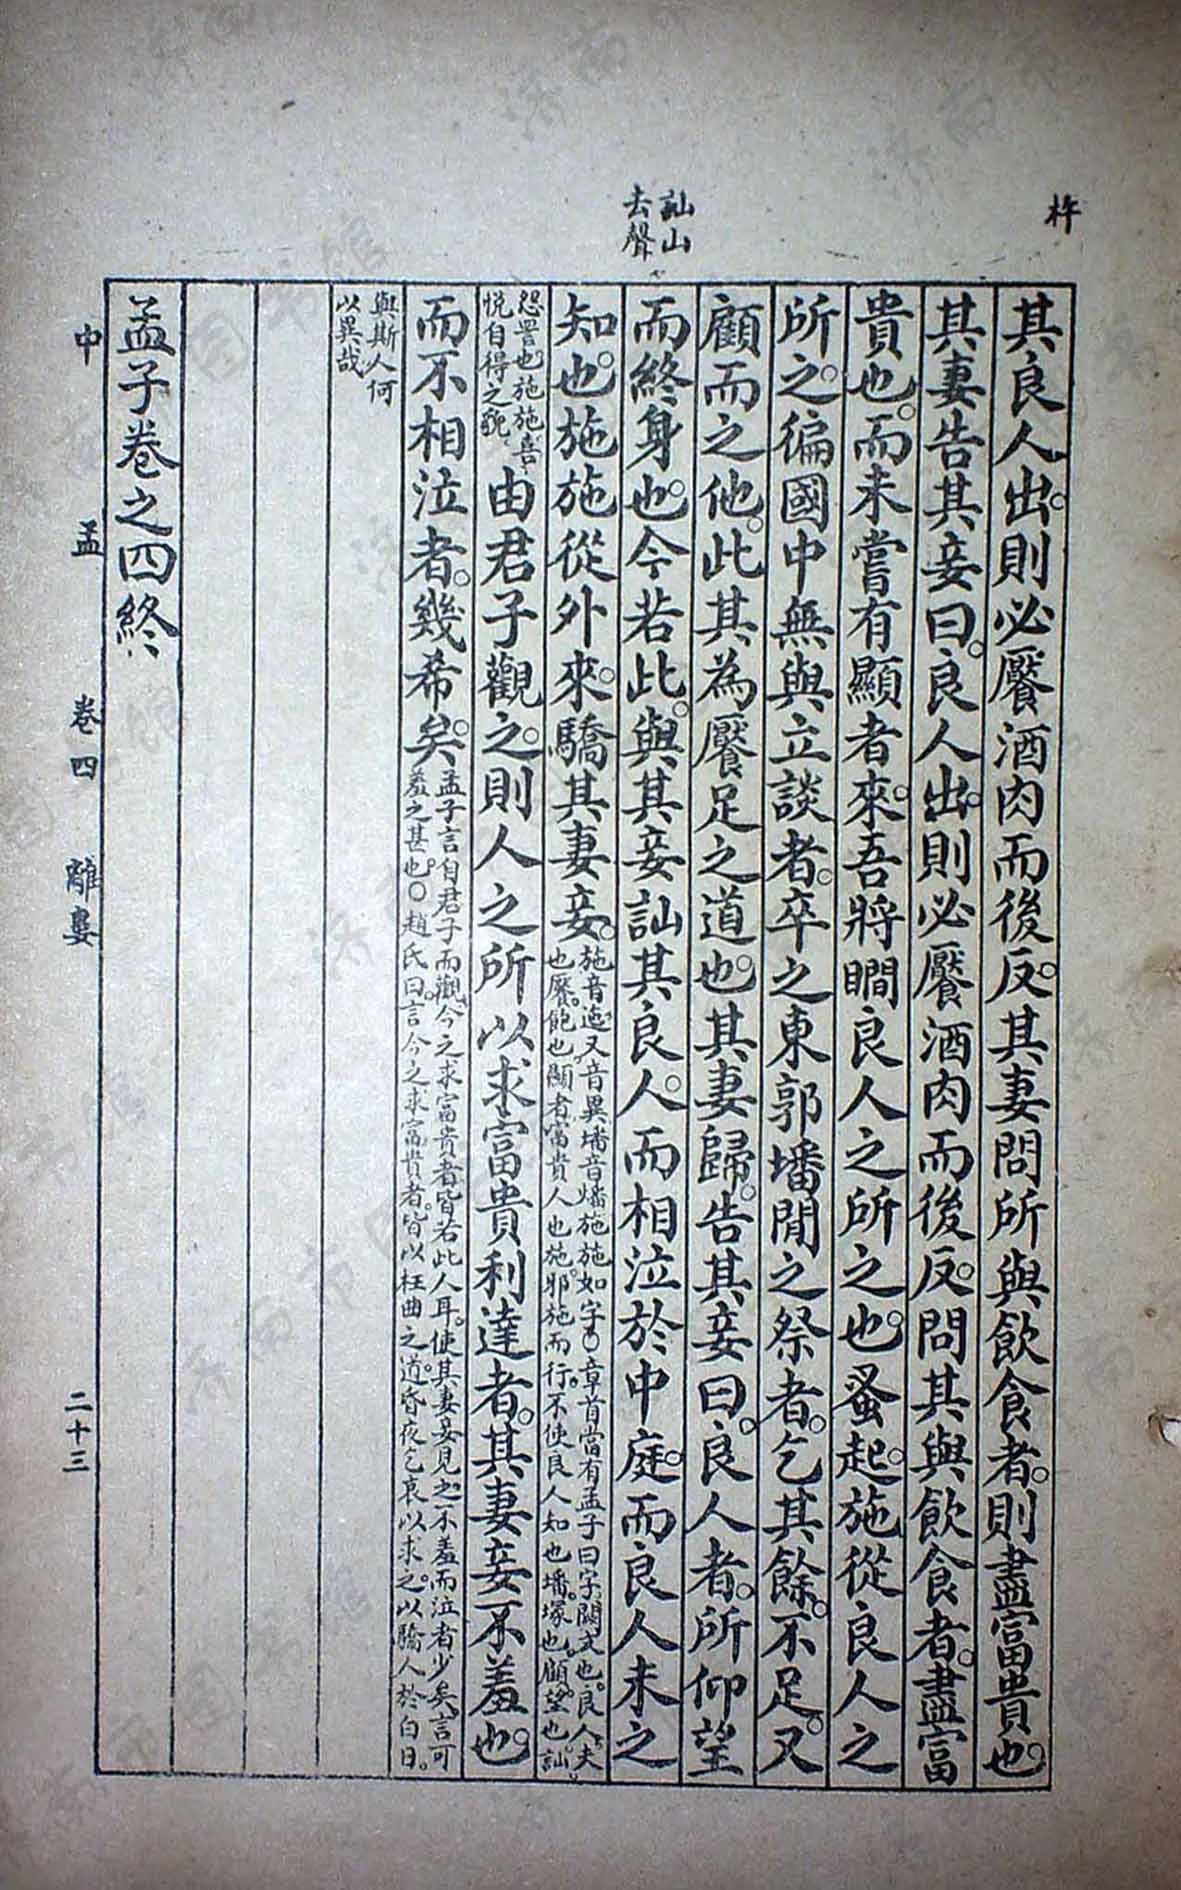 杵
訕山
去聲
其良人出。則必饜酒肉而後反。其妻問所與飲食者。則盡富貴也。
其妻告其妾曰。良人出。則必饜酒肉而後反。問其與飲食者。盡富
貴也。而未嘗有顯者來。吾將瞷良人之所之也。蚤起。施從良人之
所之。徧國中無與立談者。卒之東郭墦閒之祭者。乞其餘。不足。又
顧而之他。此其為饜足之道也。其妻歸。告其妾曰。良人者。所仰望
而終身也。今若此。與其妾訕其良人。而相泣於中庭。而良人未之
知也。施施從外來。驕其妻妾。
施音迤又音異墦音燔施施如字○章首當有孟子曰字闕文也。良人、夫
也。饜。飽也。顯者。富貴人也。施。邪施而行。不使良人知也。墦。塚也。顧。望也。訕。
怨詈也。施施喜
悅自得之貌
由君子觀之。則人之所以求富貴利達者。其妻妾不羞也。
而不相泣者。幾希矣。
孟子言自君子而觀今之求富貴者皆若此人耳。使其妻妾見之不羞而泣者少矣言可
羞之甚也。○趙氏曰。言今之求富貴者。皆以枉曲之道。昏夜乞哀以求之。以驕人於白日。
與斯人何
以異哉
孟子卷之四終
中 孟 卷四 離婁 二十三